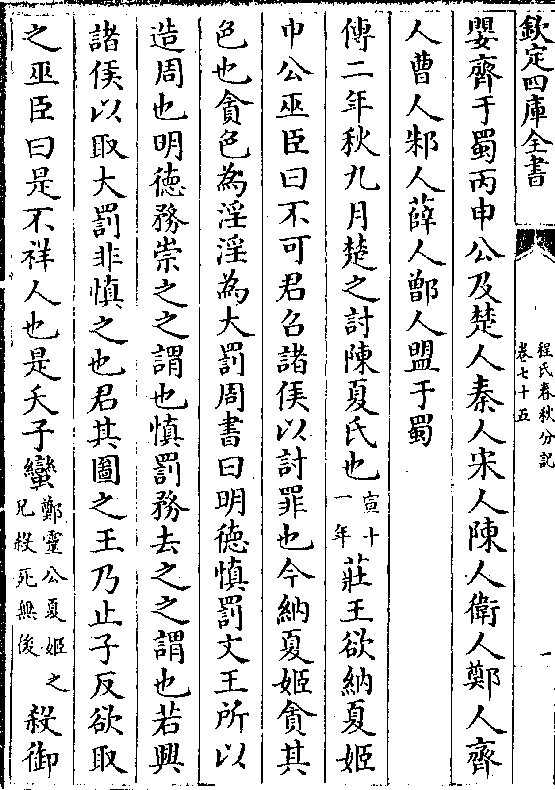 欽定四庫全書
程氏春秋分記
卷七十五
一
嬰齊于蜀丙申公及楚人秦人宋人陳人衛人鄭人齊
人曹人邾人薛人鄫人盟于蜀
傳二年秋九月楚之討陳夏氏也宣十一年莊王欲納夏姬
申公巫臣曰不可君召諸侯以討罪也今納夏姬貪其
色也貪色為淫淫為大罰周書曰明德慎罰文王所以
造周也明德務崇之之謂也慎罰務去之之謂也若興
諸侯以取大罰非慎之也君其圖之王乃止子反欲取
之巫臣曰是不祥人也是夭子蠻鄭靈公夏姬之兄殺死無後殺御